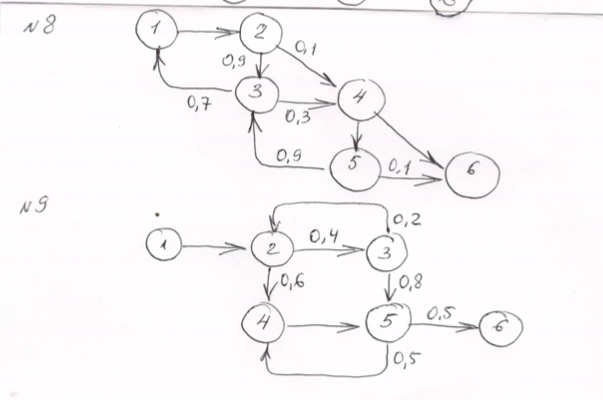 №8
1 2 0,1
0,9
3 4
0,7 0,3
0,9 5 0,1 6
№9
0,2
1 2 0,4 3
0,6 0,8
4 5 0,5 6
0,5